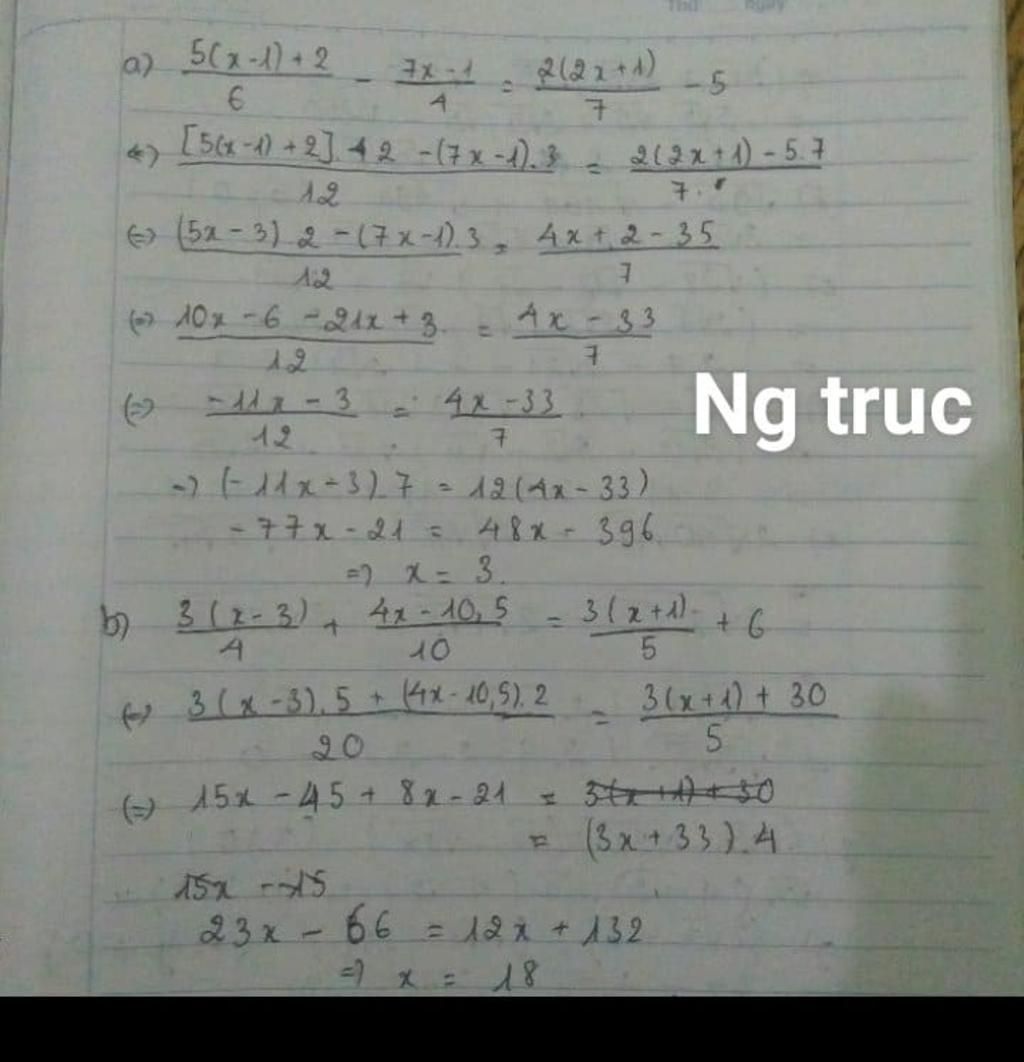 Thứ Ngày
a) \frac{5(x-1)+2}{6} - \frac{7x-1}{4} = \frac{2(2x+1)}{7} - 5
(=) \frac{[5(x-1)+2].2 - (7x-1).3}{12} = \frac{2(2x+1)-5.7}{7}
(=) \frac{(5x-3).2 - (7x-1).3}{12} = \frac{4x+2-35}{7}
(=) \frac{10x-6-21x+3}{12} = \frac{4x-33}{7}
(=) \frac{-11x-3}{12} = \frac{4x-33}{7}
Ng truc
=) (-11x-3).7 = 12(4x-33)
-77x-21 = 48x-396
=) x = 3.
b) \frac{3(x-3)}{4} + \frac{4x-10,5}{10} = \frac{3(x+1)}{5} + 6
(=) \frac{3(x-3).5 + (4x-10,5).2}{20} = \frac{3(x+1)+30}{5}
(=) 15x-45+8x-21 = 3(x+1)+30
= (3x+33).4
15x - 15
23x-66 = 12x+132
=) x = 18